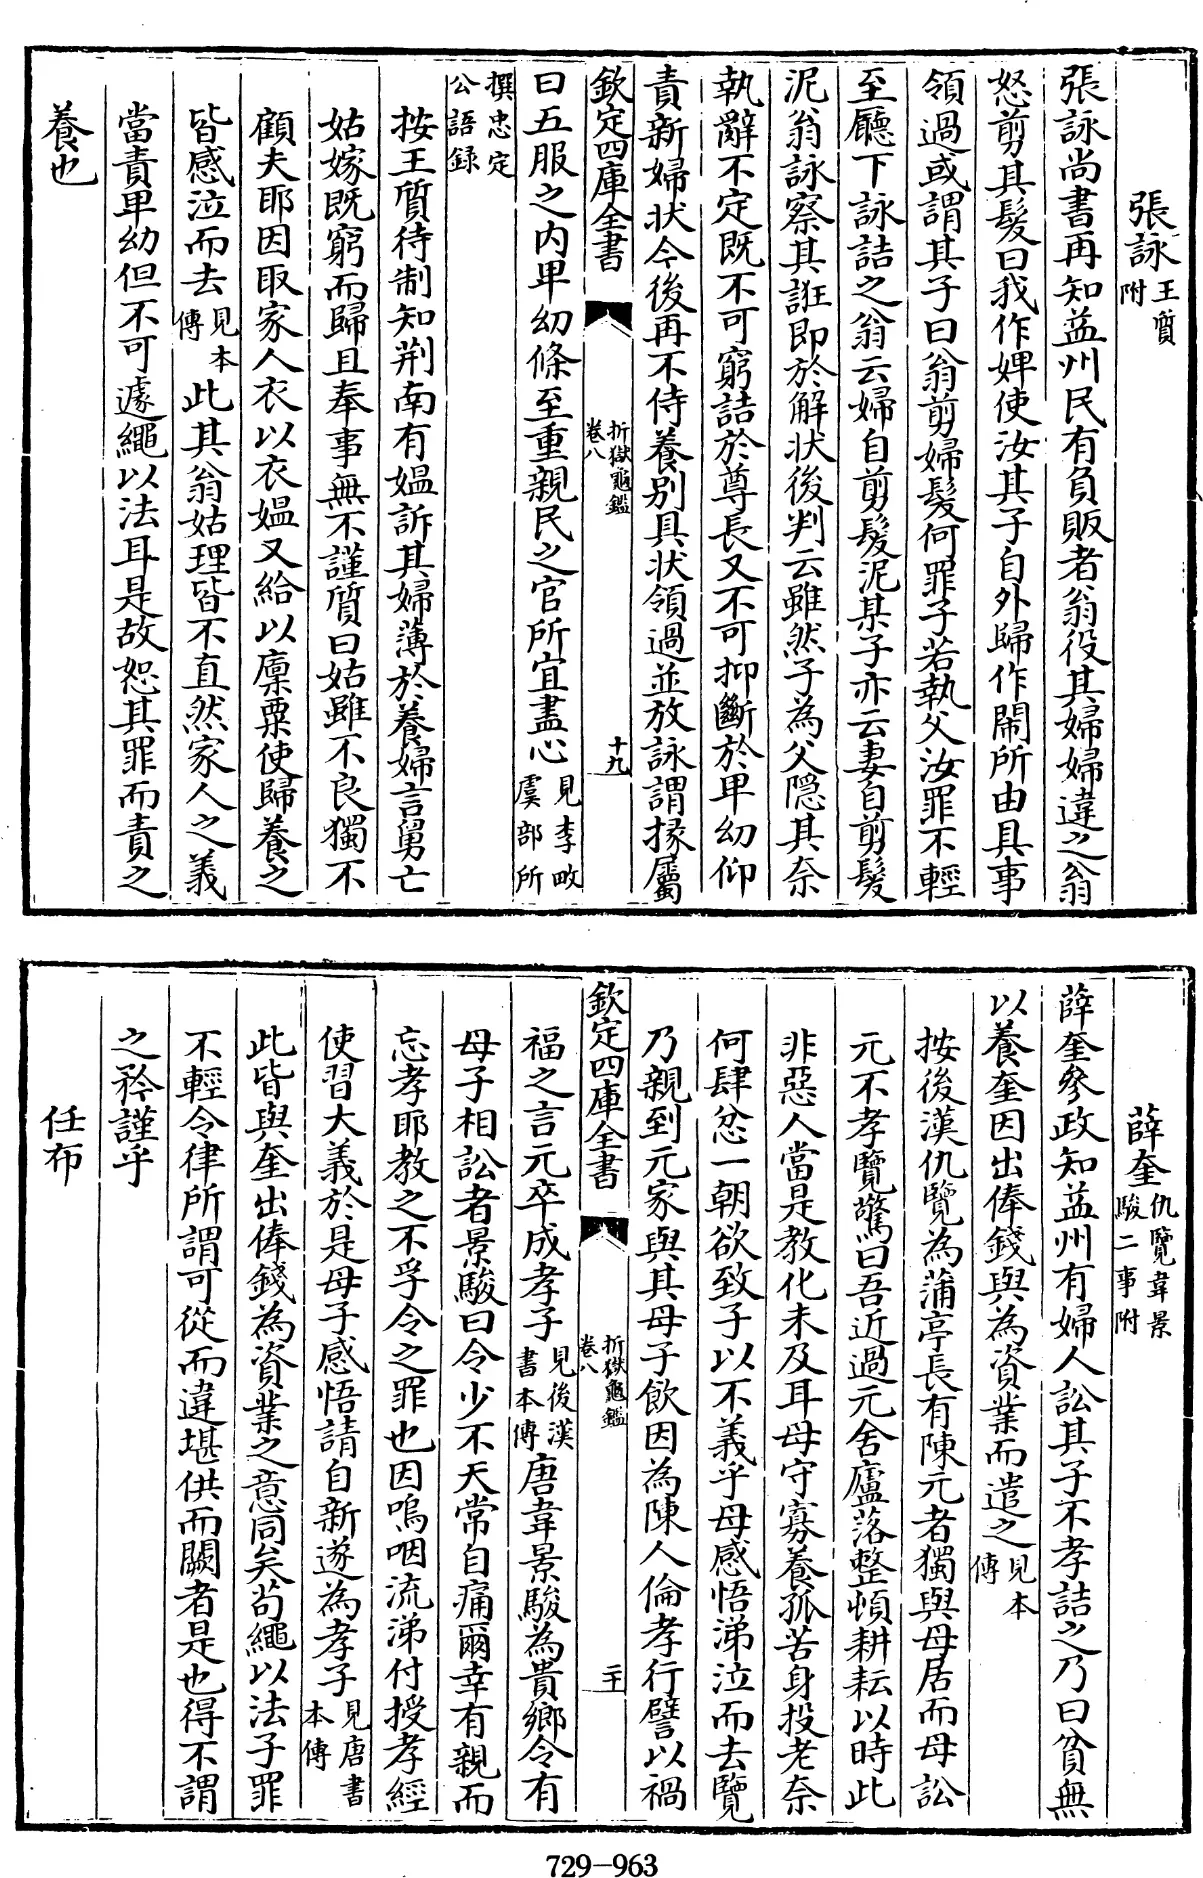 張詠王質附
張詠尚書再知益州民有負販者翁役其婦婦違之翁
怒剪其髮曰我作婢使汝其子自外歸作鬧所由具事
領過或謂其子曰翁剪婦髮何罪子若執父汝罪不輕
至廳下詠詰之翁云婦自剪髮泥某子亦云妻自剪髮
泥翁詠察其誑即於解狀後判云雖然子為父隱其奈
執辭不定既不可窮詰於尊長又不可抑斷於卑幼仰
責新婦狀今後再不侍養別具狀領過並放詠謂掾屬
欽定四庫全書 折獄龜鑑卷八 十九
曰五服之內卑幼條至重親民之官所宜盡心見李畋虞部所
撰忠定公語録
按王質待制知荊南有媼訴其婦薄於養婦言舅亡
姑嫁既窮而歸且奉事無不謹質曰姑雖不良獨不
顧夫耶因取家人衣以衣媼又給以廩粟使歸養之
皆感泣而去見本傳此其翁姑理皆不直然家人之義
當責卑幼但不可遽繩以法耳是故恕其罪而責之
養也
薛奎仇覽韋景駿二事附
薛奎參政知益州有婦人訟其子不孝詰之乃曰貧無
以養奎因出俸錢與為資業而遣之見本傳
按後漢仇覽為蒲亭長有陳元者獨與母居而母訟
元不孝覽驚曰吾近過元舍廬落整頓耕耘以時此
非惡人當是教化未及耳母守寡養孤苦身投老奈
何肆忿一朝欲致子以不義乎母感悟涕泣而去覽
乃親到元家與其母子飲因為陳人倫孝行譬以禍
欽定四庫全書 折獄龜鑑卷八 二十
福之言元卒成孝子見後漢書本傳唐韋景駿為貴鄉令有
母子相訟者景駿曰令少不天常自痛爾幸有親而
忘孝耶教之不孚令之罪也因嗚咽流涕付授孝經
使習大義於是母子感悟請自新遂為孝子見唐書本傳
此皆與奎出俸錢為資業之意同矣茍繩以法子罪
不輕令律所謂可從而違堪供而闕者是也得不謂
之矜謹乎
任布
729-963